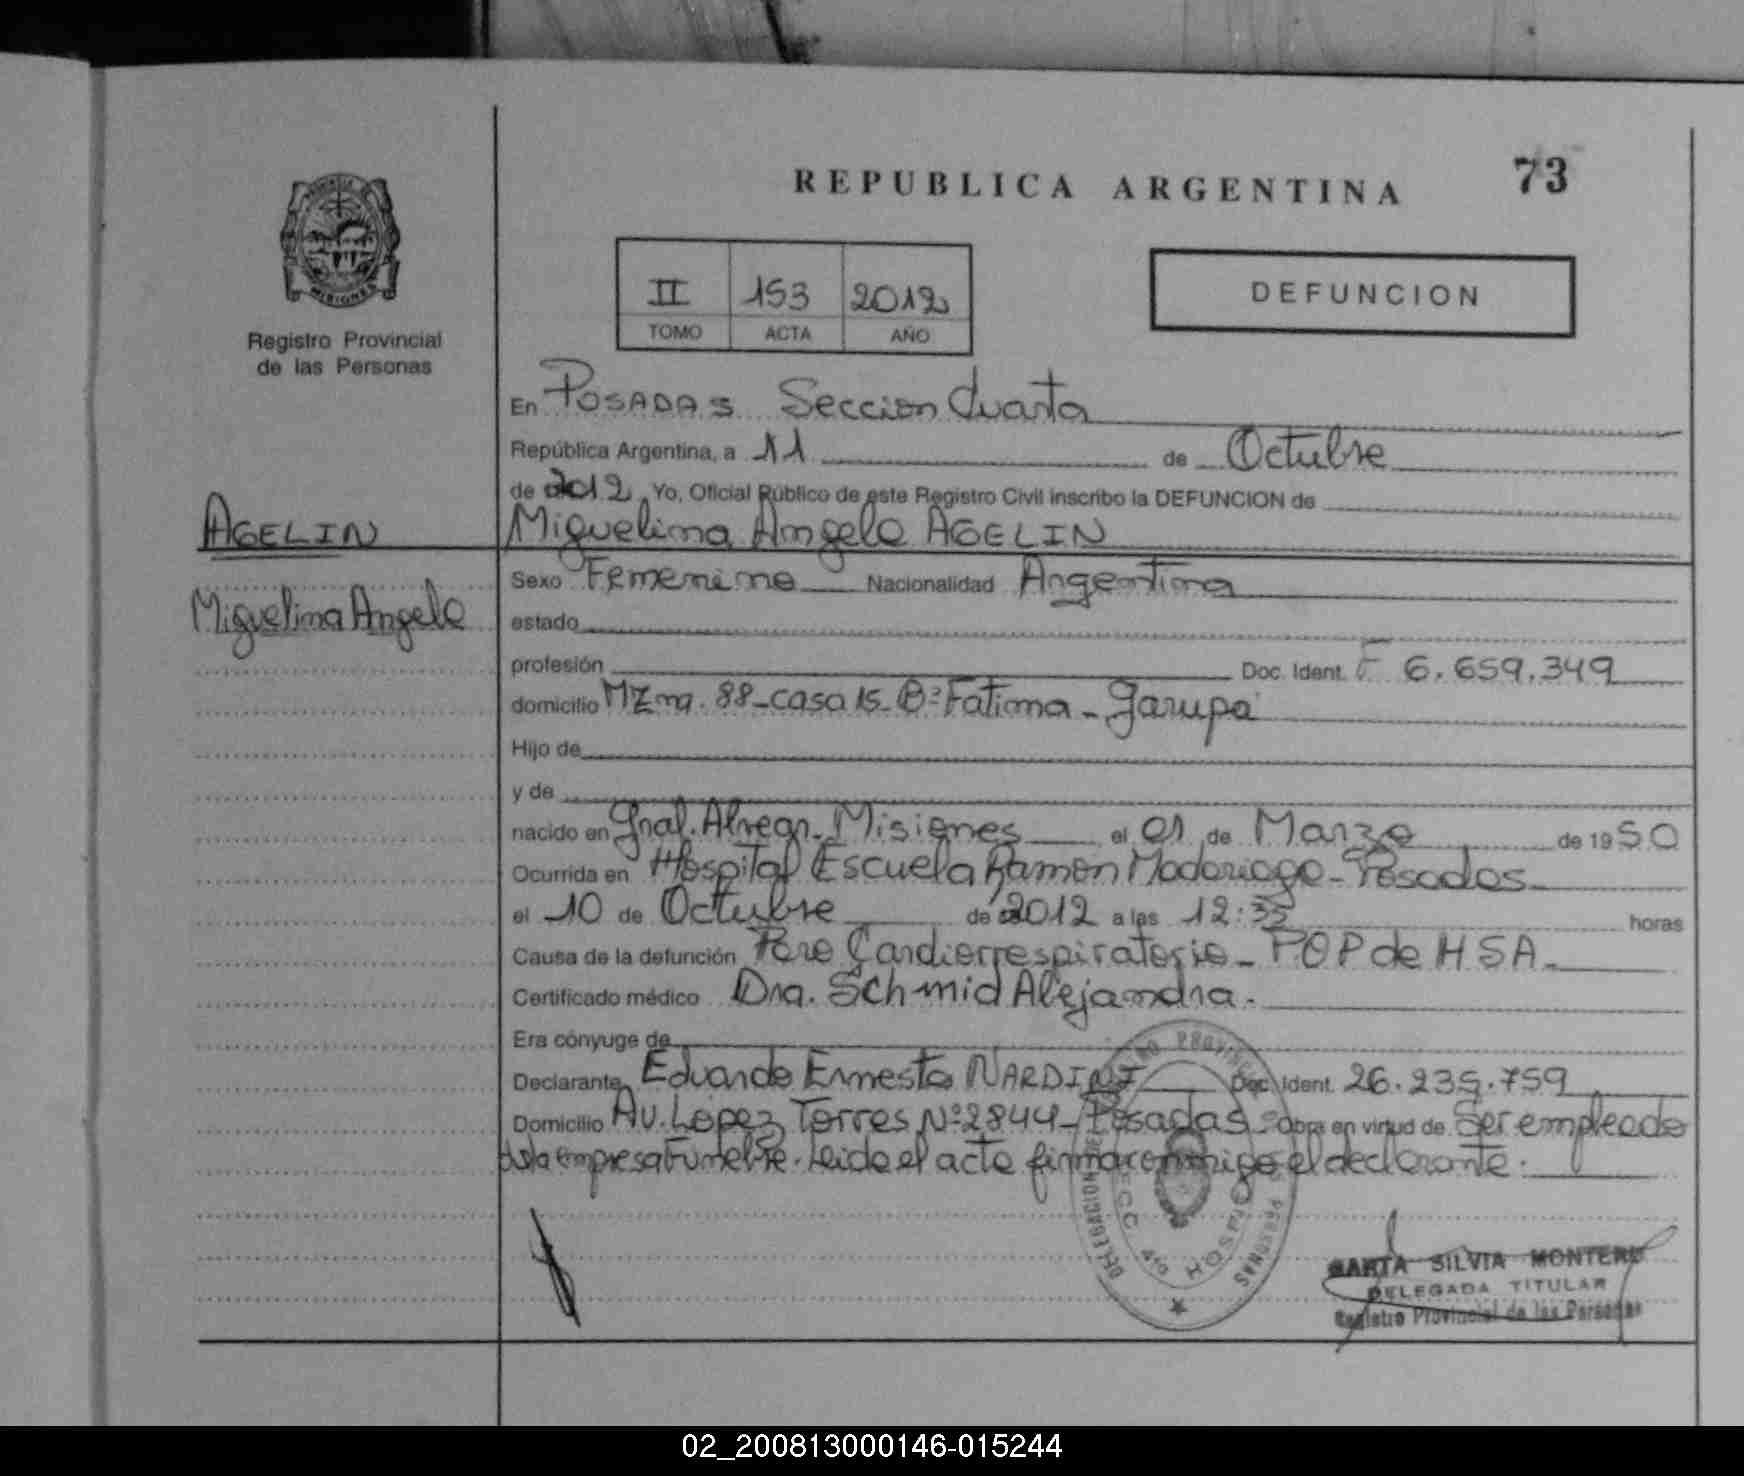 REPUBLICA ARGENTINA
73
MISIONES
Registro Provincial
de las Personas
II 153 2012
TOMO ACTA AÑO
DEFUNCION
En POSADAS Seccion Cuarta
República Argentina, a 11 de Octubre
de 2012 Yo, Oficial Público de este Registro Civil inscribo la DEFUNCION de
AGELIN
Miguelina Angela AGELIN
Sexo Femenino Nacionalidad Argentina
Miguelina Angela
estado
profesión Doc. Ident. F 6.659.349
domicilio MZna. 88-casa 15-Bº Fatima-Garupá
Hijo de
y de
nacido en Gral. Alvear-Misiones el 01 de Marzo de 1950
Ocurrida en Hospital Escuela Ramon Madariaga-Posadas
el 10 de Octubre de 2012 a las 12:35 horas
Causa de la defunción Paro Cardiorrespiratorio-POP de HSA-
Certificado médico Dra. Schmid Alejandra.
Era cónyuge de
Declarante Eduardo Ernesto NARDINI Doc. Ident. 26.235.759
Domicilio Av. Lopez Torres Nº 2844-Posadas- Obra en virtud de Ser empleado
de la empresa Funebre. Leida el acta firma conmigo el declarante.
MARTA SILVIA MONTERO
DELEGADA TITULAR
Registro Provincial de las Personas
02_200813000146-015244